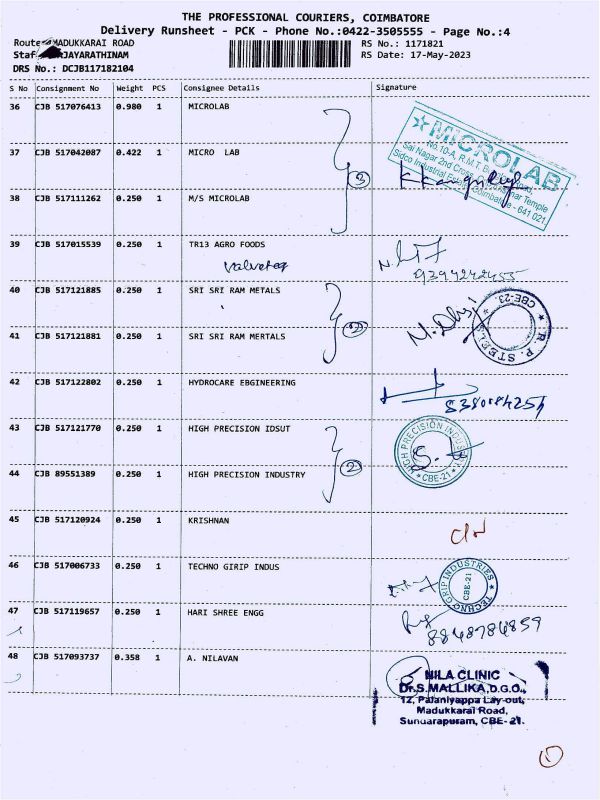 THE PROFESSIONAL COURIERS, COIMBATORE
Delivery Runsheet - PCK - Phone No.:0422-3505555 - Page No.:4
Route MADUKKARAI ROAD RS No.: 1171821
Staf JAYARATHINAM RS Date: 17-May-2023
DRS No.: DCJB117182104
S No Consignment No Weight PCS Consignee Details Signature
36 CJB 517076413 0.980 1 MICROLAB
37 CJB 517042087 0.422 1 MICRO LAB
38 CJB 517111262 0.250 1 M/S MICROLAB
3
MICROLAB
No.10-A, R.M.T.
Sai Nagar 2nd Cross, Temple
Sidco Industrial Estate, Coimbatore - 641 021.
39 CJB 517015539 0.250 1 TR13 AGRO FOODS
40 CJB 517121885 0.250 1 SRI SRI RAM METALS
41 CJB 517121881 0.250 1 SRI SRI RAM MERTALS
2
R. P. STEELS
CBE-23
42 CJB 517122802 0.250 1 HYDROCARE EBGINEERING
43 CJB 517121770 0.250 1 HIGH PRECISION IDSUT
44 CJB 89551389 0.250 1 HIGH PRECISION INDUSTRY
2
HIGH PRECISION INDUSTRY
CBE-21
45 CJB 517120924 0.250 1 KRISHNAN
46 CJB 517006733 0.250 1 TECHNO GIRIP INDUS
TECHNO GRIP INDUSTRIES
CBE-21
47 CJB 517119657 0.250 1 HARI SHREE ENGG
8848784859
48 CJB 517093737 0.358 1 A. NILAVAN
NILA CLINIC
Dr.S.MALLIKA,D.G.O.,
12, Palaniyappa Lay-out,
Madukkarai Road,
Sundarapuram, CBE-21.